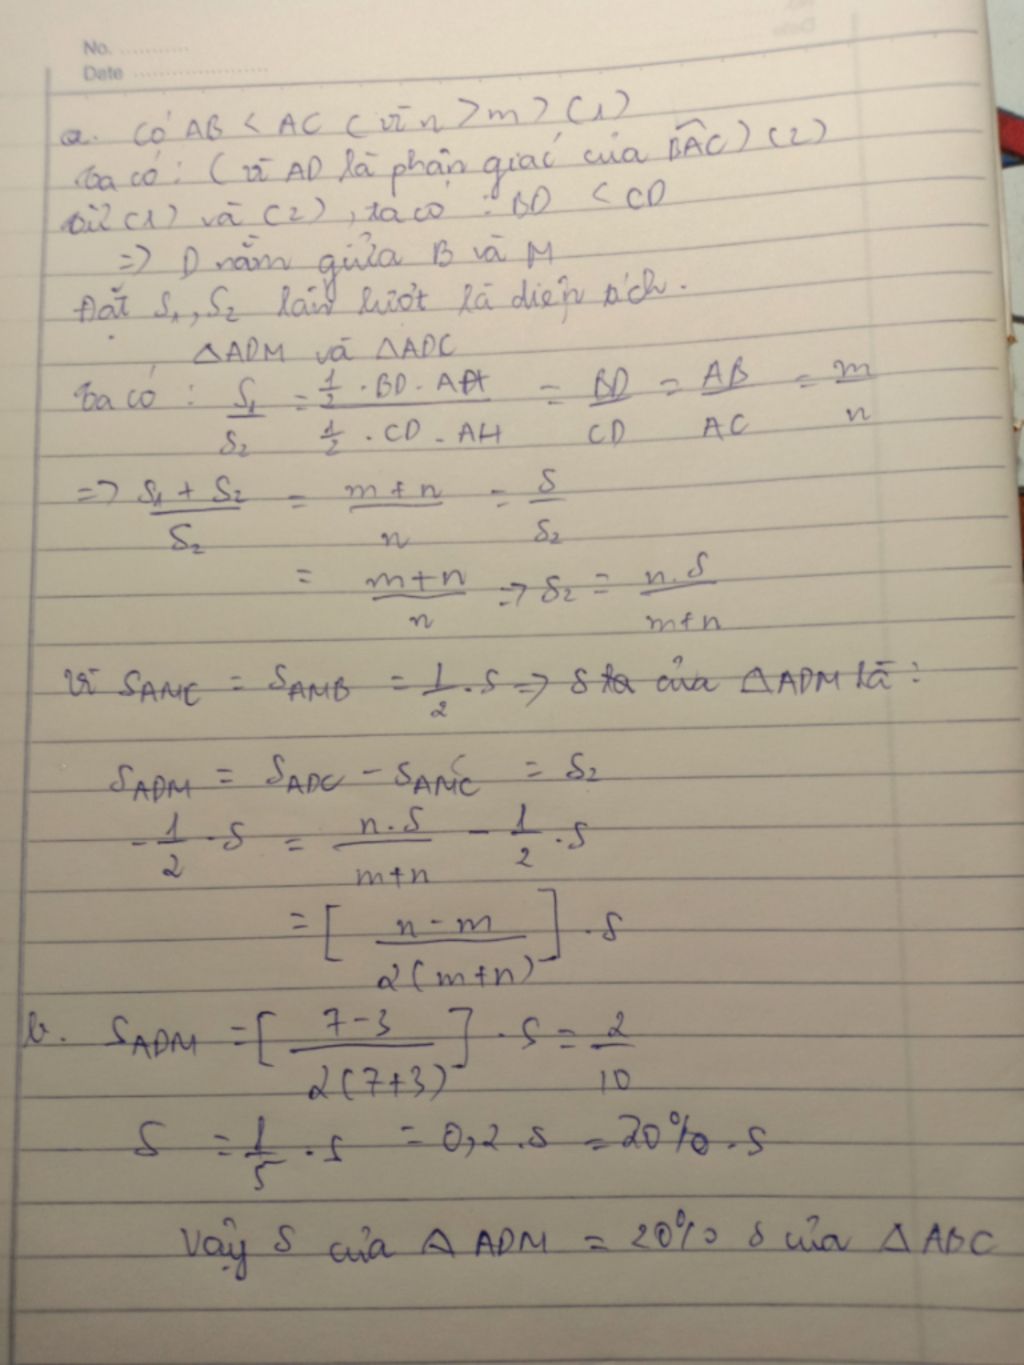 No. ............
Date ....................
a. Có AB < AC ( vì n > m > (1)
ta có : ( vì AD là phân giác của BAC) (2)
từ (1) và (2), ta có : BD < CD
=> D nằm giữa B và M
Đặt S₁, S₂ lần lượt là diện tích.
△ADM và △ADC
ta có : S₁/S₂ = (1/2 . BD . AH)/(1/2 . CD . AH) = BD/CD = AB/AC = m/n
=> (S₁ + S₂)/S₂ = (m + n)/n = S/S₂
= (m+n)/n => S₂ = (n.S)/(m+n)
vì S_AMC = S_AMB = 1/2 . S => S của △ADM là :
S_ADM = S_ADC - S_AMC = S₂
- 1/2 . S = (n.S)/(m+n) - 1/2 . S
= [ (n - m)/(2(m+n)) ] . S
b. S_ADM = [ (7-3)/(2(7+3)) ] . S = 2/10
S = 1/5 . S = 0,2 . S = 20% . S
Vậy S của △ ADM = 20% S của △ ABC